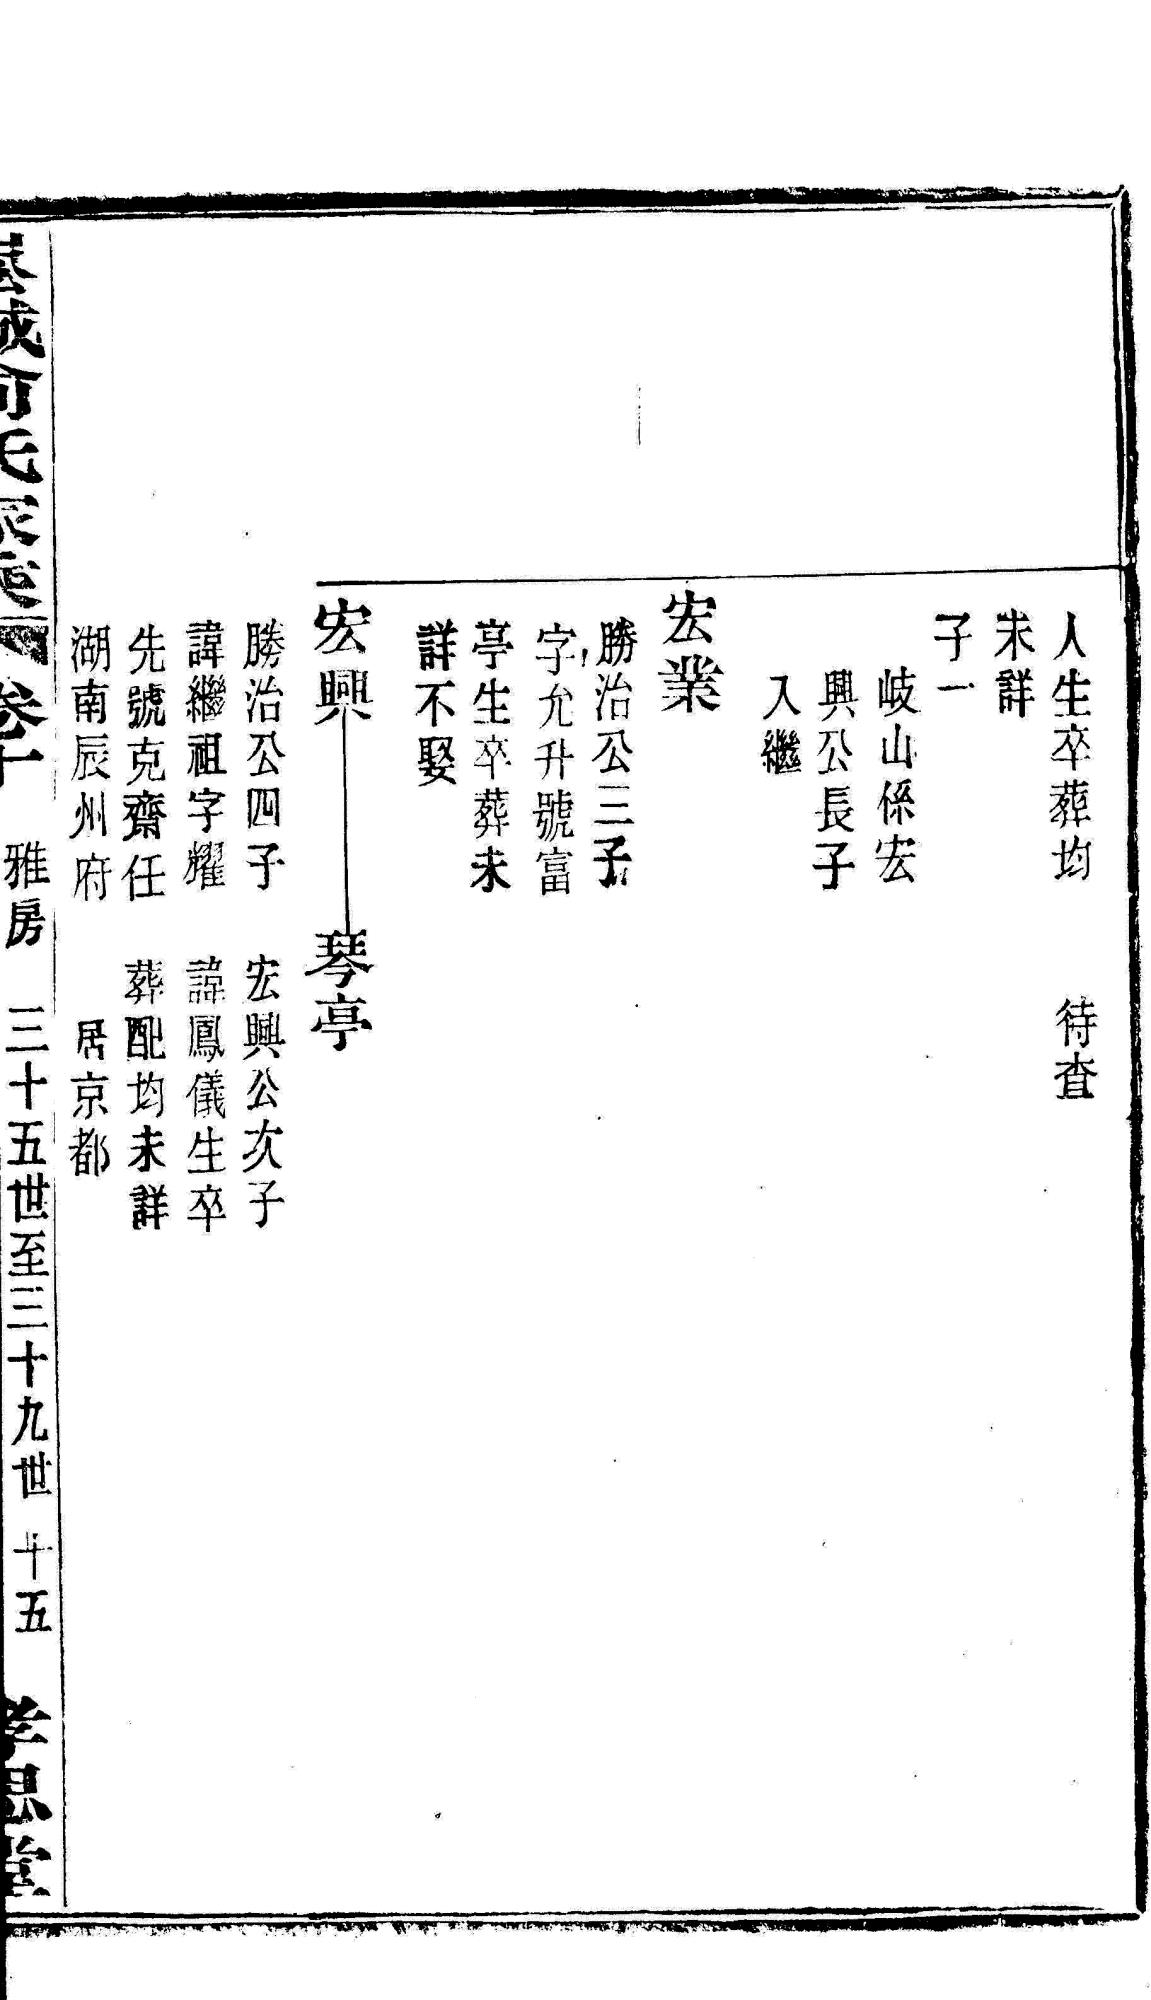 人生卒葬均
待查
未詳
子一
岐山係宏
興公長子
入繼
宏業
勝治公三子
字允升號富
亭生卒葬未
詳不娶
宏興
琴亭
勝治公四子
諱繼祖字耀
先號克齋任
湖南辰州府
宏興公次子
諱鳳儀生卒
葬配均未詳
居京都
城俞氏 卷十 雅房 三十五世至三十九世 十五 孝思堂